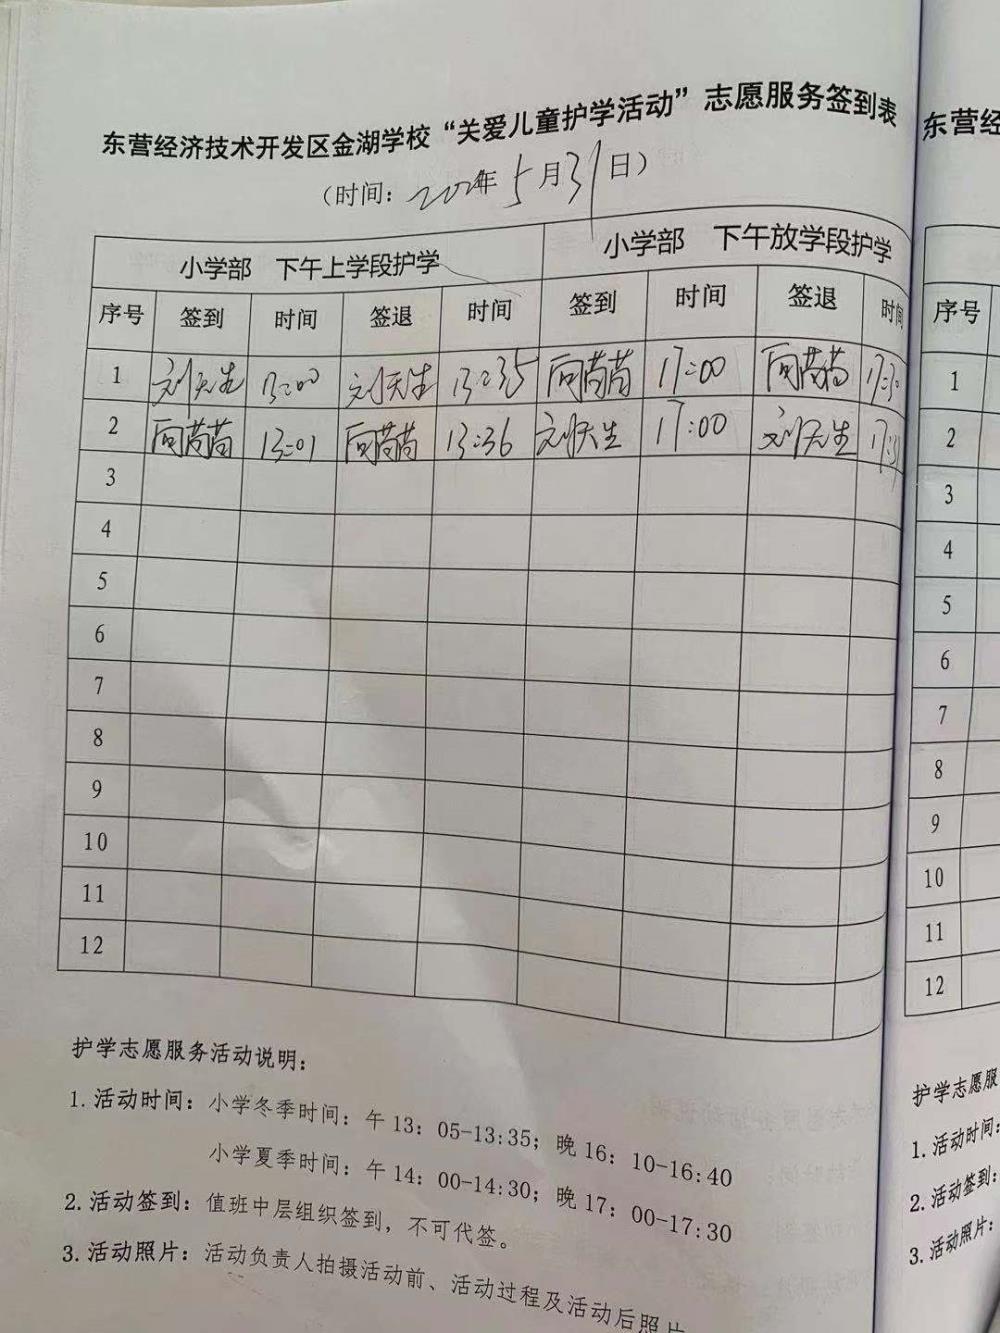 东营经济技术开发区金湖学校“关爱儿童护学活动”志愿服务签到表
（时间：202年5月31日）
小学部 下午上学段护学 小学部 下午放学段护学
序号 签到 时间 签退 时间 签到 时间 签退 时间
1 刘天生 13:00 刘天生 13:35 向苗苗 17:00 向苗苗 17:30
2 向苗苗 13:01 向苗苗 13:36 刘天生 17:00 刘天生 17:
3
4
5
6
7
8
9
10
11
12
护学志愿服务活动说明：
1.活动时间：小学冬季时间：午13：05-13:35；晚16：10-16:40
小学夏季时间：午14：00-14:30；晚17：00-17:30
2.活动签到：值班中层组织签到，不可代签。
3.活动照片：活动负责人拍摄活动前、活动过程及活动后照片
东营经
序号
1
2
3
4
5
6
7
8
9
10
11
12
护学志愿服
1.活动时间：
2.活动签到：
3.活动照片：